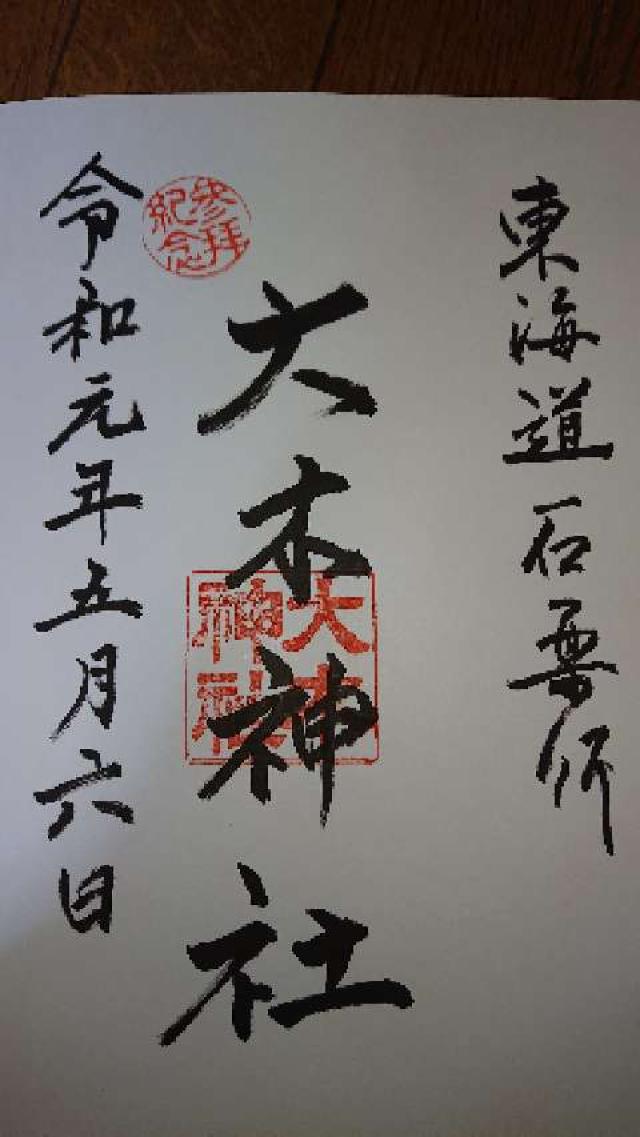 東海道石薬師
大木神社
大木神社
参拝
紀念
令和元年五月六日